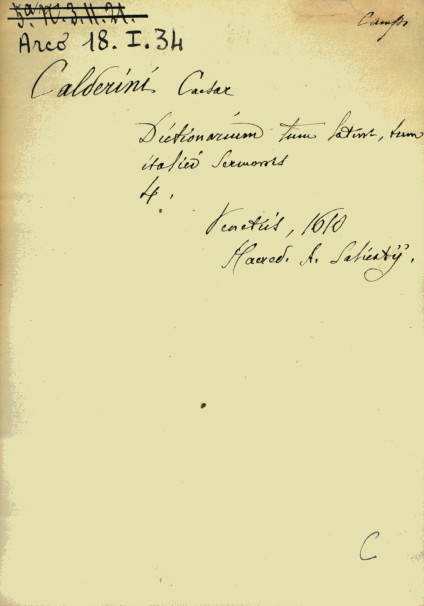 Campi
Arcò 18. I. 34
Calderini Caesar
Dictionarium tum latini, tum
italici sermonis
4.
Venetiis, 1610
Haered. A. Salicatij.
C